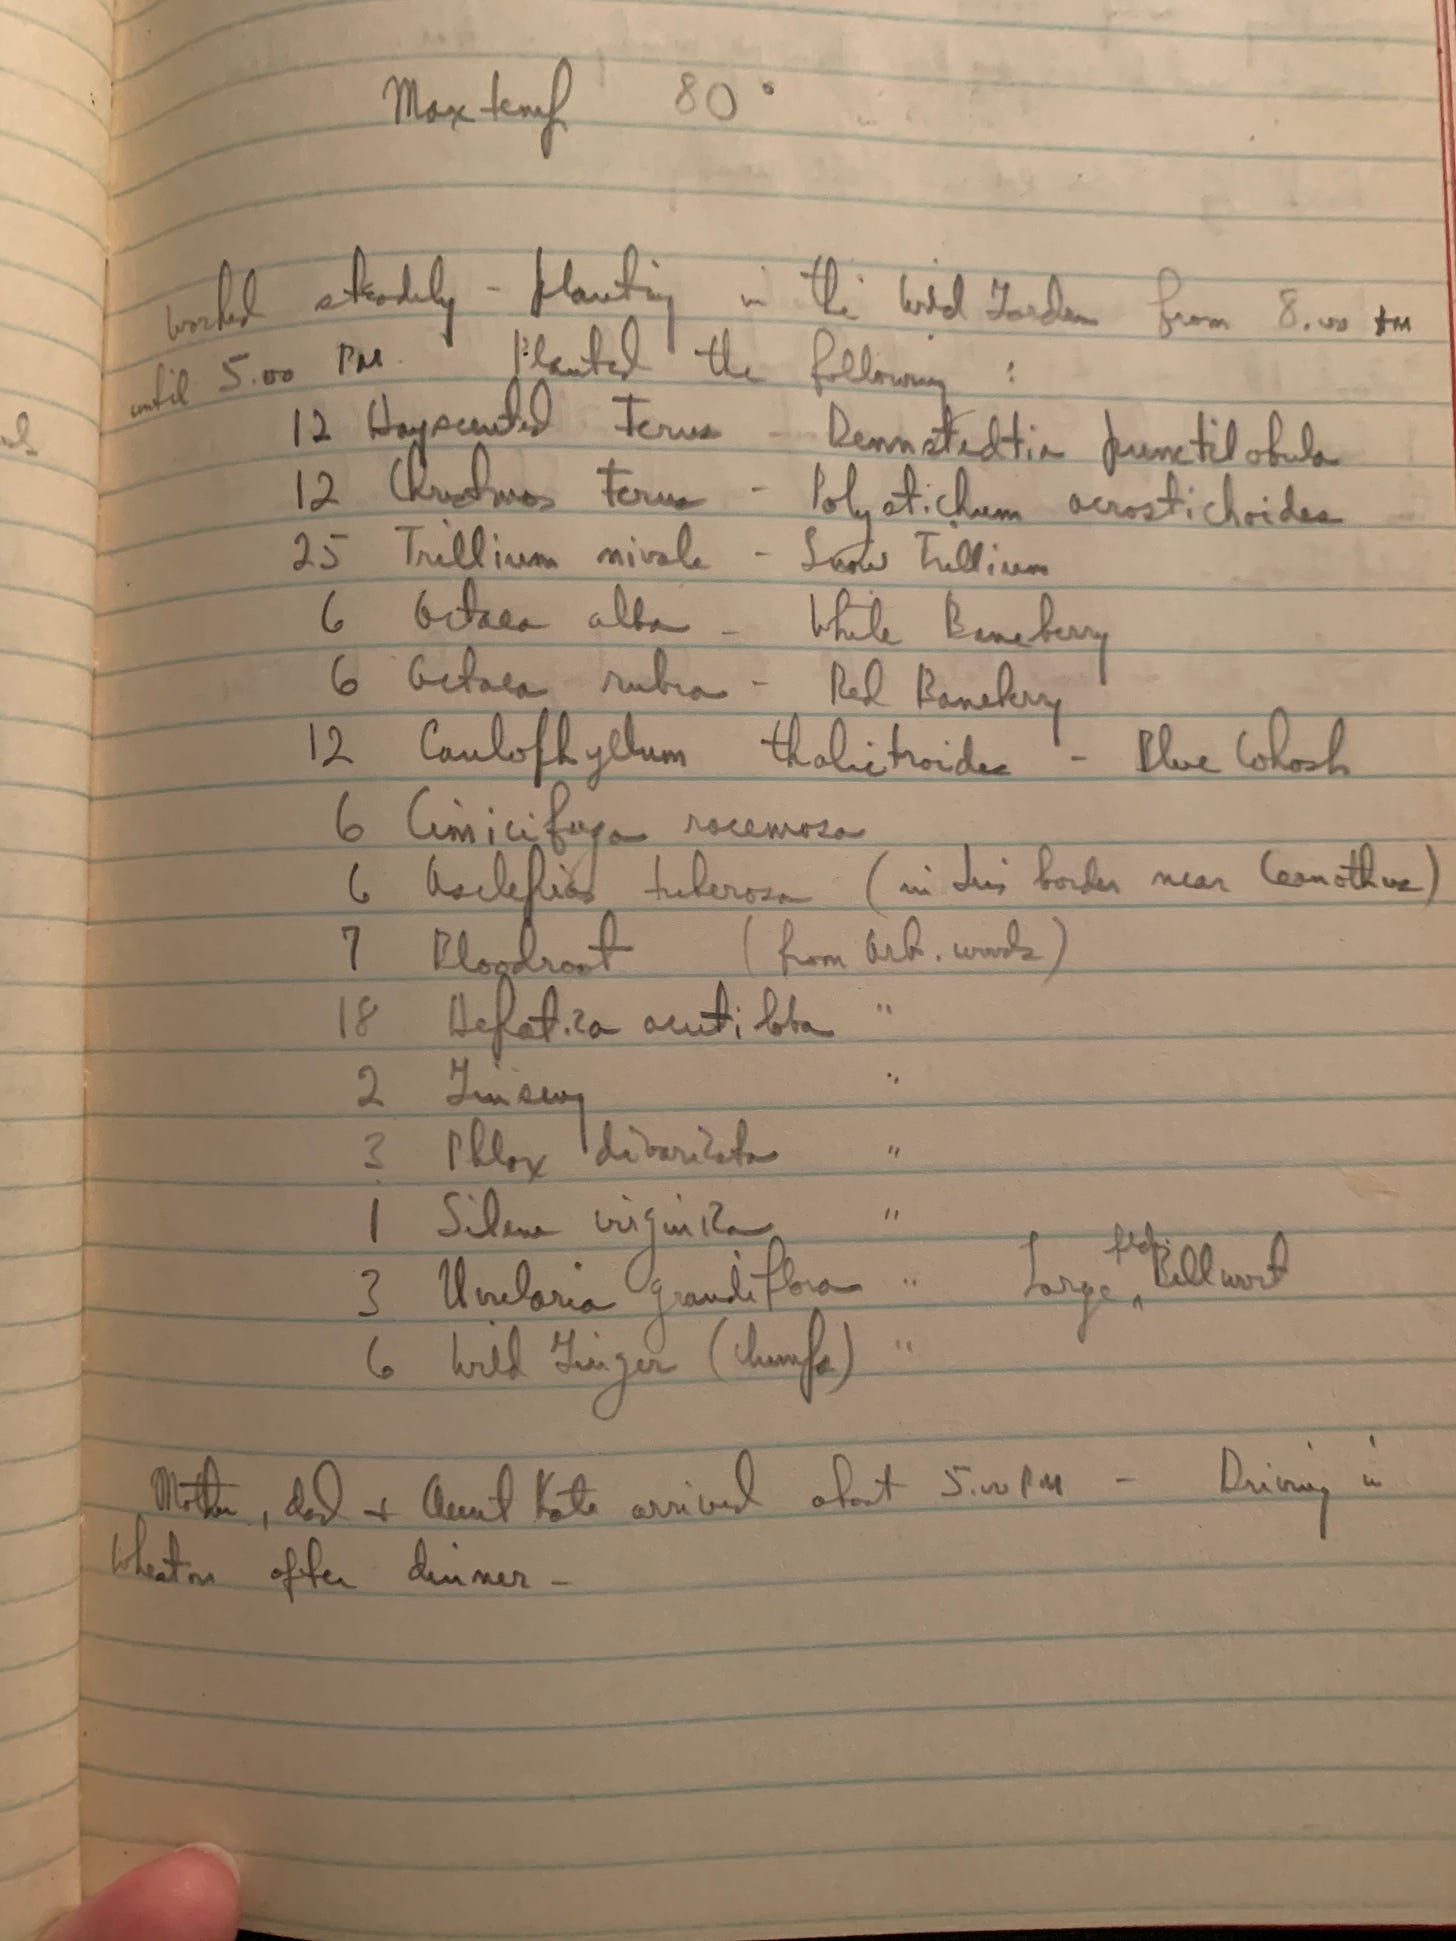 Max temp 80°
Worked steadily - planting in the Wild Garden from 8.00 AM
until 5.00 PM. Planted the following :
12 Hayscented Ferns - Dennstedtia punctilobula
12 Christmas Ferns - Polystichum acrostichoides
25 Trillium nivale - Snow Trillium
6 Actaea alba - White Baneberry
6 Actaea rubra - Red Baneberry
12 Caulophyllum thalictroides - Blue Cohosh
6 Cimicifuga racemosa
6 Asclepias tuberosa (in Iris border near Ceanothus)
7 Bloodroot (from Arb. woods)
18 Hepatica acutiloba "
2 Ginseng "
3 Phlox divaricata "
1 Silene virginica "
3 Uvularia grandiflora " Large fld. Bellwort
6 Wild Ginger (clumps) "
Mother, dad + Aunt Kate arrived about 5.00 PM - Driving in
Wheaton after dinner -